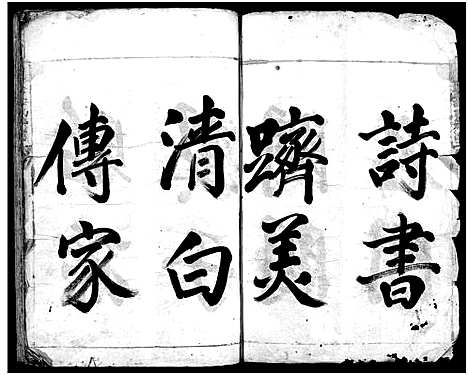 詩書
躋美
清白
傳家